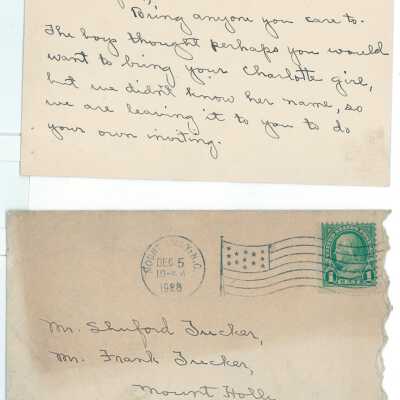 Bring anyone you care to.
The boys thought perhaps you would
want to bring your Charlotte girl,
but we didn't know her name, so
we are leaving it to you to do
your own inviting.
MOUNT HOLLY, N.C.
DEC 5
10 AM
1928
UNITED STATES POSTAGE
1 CENT 1
Mr. Shuford Tucker,
Mr. Frank Tucker,
Mount Holly